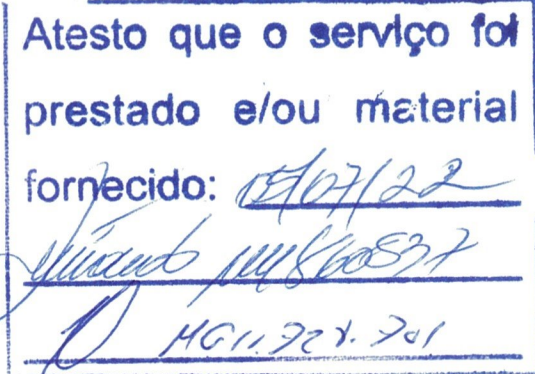 Atesto que o serviço foi
prestado e/ou material
fornecido: 05/07/22
860537
MG11.728.701